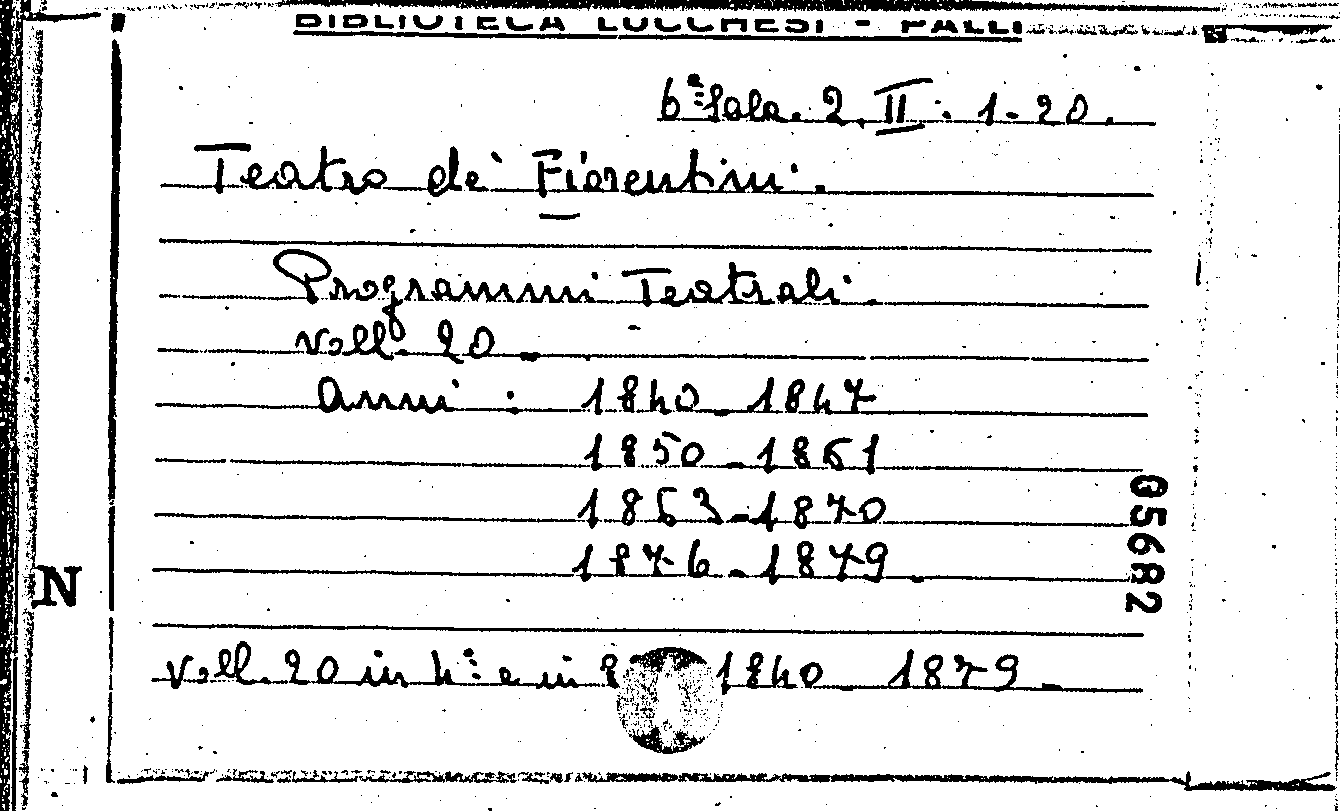 BIBLIOTECA LUCCHESI - PALLI
6ª Sala. 2. II. 1-20.
Teatro de' Fiorentini.
Programmi Teatrali.
Voll. 20.
Anni: 1840-1847
1850-1861
1863-1870
1876-1879.
05682
N
Voll. 20 in 4º e in 8 1840 1879.